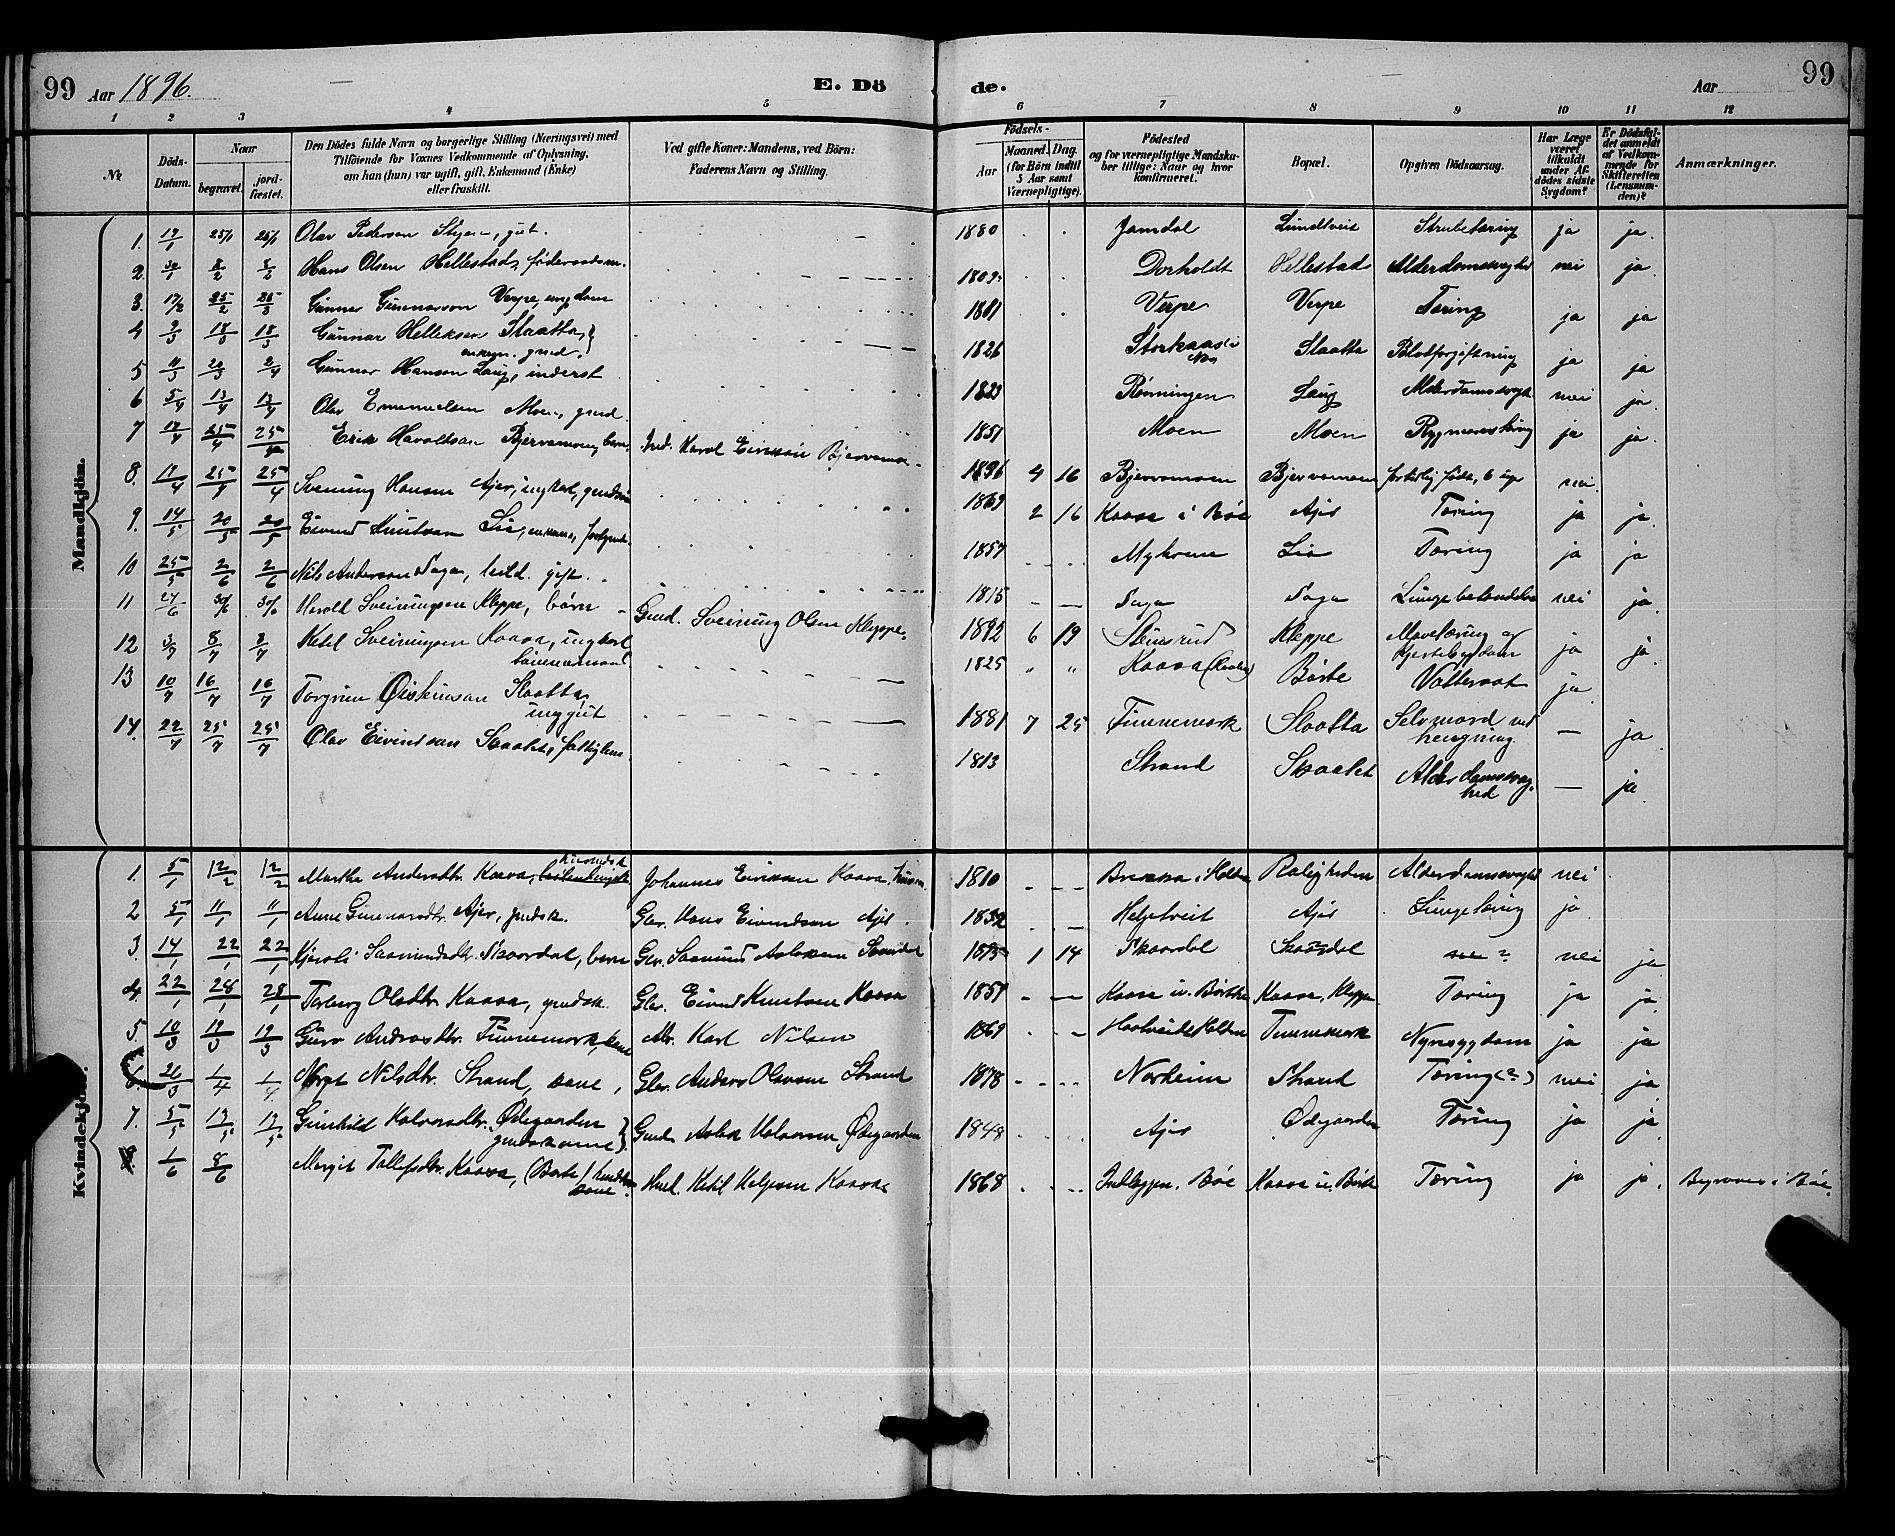 99 Aar 1896. E. Dö
de. Aar 99
1 2 3 4 5 6 7 8 9 10 11 12
№
Döds-Datum.
Naar
begravet.
jordfæstet.
Den Dödes fulde Navn og borgerlige Stilling (Næringsvei) med
Tilföiende for Voxnes Vedkommende af Oplysning,
om han (hun) var ugift, gift, Enkemand (Enke)
eller fraskilt.
Ved gifte Koner: Mandens, ved Börn:
Faderens Navn og Stilling.
Födsels-
Aar
Maaned. Dag.
(for Börn indtil
5 Aar samt
Værnepligtige).
Födested
og for værnepligtige Mandska-
ber tillige: Naar og hvor
konfirmeret.
Bopæl.
Opgiven Dödsaarsag.
Har Læge
været
tilkaldt
under Af-
dödes sidste
Sygdom?
Er Dödsfal-
det anmeldt
af Vedkom-
mende for
Skifteretten
(Lensman-
den)?
Anmærkninger.
Mandkjön.
1. 19/1 25/1 25/1 Olav Pederson Skjen, gut. 1880 Jamdal Lundtveit Strubetæring ja ja.
2. 30/1 8/2 8/2 Hans Olsen Hellestad, föderaadsm. 1809 Dorholdt Hellestad Alderdomssvaghed nei ja
3. 17/2 25/2 Gunnar Gunnarson Verpe, ungdom 1881 Verpe Verpe Tæring ja ja
4 9/3 18/3 18/3 Gunnar Helleksen Slaatta, enkem. gmd. 1826 Storkaas i Nes Slaatta Blodforgiftning ja ja
5 11/3 20/3 2/4 Gunnar Hanson Laug, inderst 1823 Rønningen Laug Alderdomssvagh. nei ja.
6 5/4 13/4 13/4 Olav Emanuelsen Moen, gmd. 1851 Moen Moen Rygmarvstæring ja ja.
7 17/4 25/4 25/4 Erik Haroldsen Bjervamoen, barn Ind. Harol Erikson Bjervamoen 1896 4 16 Bjervamoen Bjervamoen nei
8. 17/4 25/4 25/4 Sveinung Hansen Ajer, ungkarl, 1869 2 16 Kaasa i Böe Ajer Tæring ja ja.
9. 14/5 20/5 20/5 Eivind Knutson Lia, enkem., 1857 Myhren Lia Tæring ja ja
10 25/5 2/6 2/6 Nils Anderson Saga, gift. 1815 Saga Saga Lungebetændelse nei ja
11 24/6 30/6 30/6 Harold Sveinungsen Kleppe, börn Gmd. Sveinung Olsen Kleppe. 1892 6 19 Stensrud Kleppe Mavetæring og ja ja.
12 3/7 8/7 8/7 Ketil Sveinungsen Kaasa, ungkarl 1825 " " Kaasa Börte Vattersot ja
13 10/7 16/7 16/7 Torgrim Øisteinsen Slaatta, unggut 1881 7 25 Finnemork Slaatta Selvmord ved hengning. — ja
14. 22/7 25/7 25/7 Olav Eivindsen Skaalid, 1813 Strand Skaalid Alderdomssvaghed — ja
Kvindekjön.
1. 5/1 12/2 12/2 Marthe Andersdtr. Kaasa, Johannes Eirikson Kaasa. 1810 i Holden Roligheden Alderdomssvaghed nei
2 5/1 11/1 11/1 Anne Gunnarsdtr. Ajer, gmdsk. Gbr. Hans Eivindson Ajer. 1832 Helgetveit Ajer Lungetæring ja
3. 14/1 22/1 22/1 Saamundsdtr. Skaardal, barn Gbr. Saamund Aslaksen 1895 1 14 Skaardal Skaardal ? nei ja
4. 22/1 28/1 28/1 Torborg Olsdtr. Kaasa, gmdsk. Gbr. Eivind Knutsen Kaasa 1851 Kaasa u. Börte Kaasa, Kleppe Tæring ja ja.
5. 10/3 19/3 19/3 Guro Andersdtr. Finnemork, kone Karl Nilsen 1869 Holden Finnemork Nyresygdom ja ja
6. 26/3 1/4 1/4 Nilsdtr. Strand, kone, Gbr. Anders Olavsen Strand 1878 Norheim Strand Tæring (?) nei ja
7. 5/5 13/5 13/5 Gunhild Halvorsdtr. Ødegaarden gmdskone Gmd. Aslak Halvorsen Ødegaarden 1848 Ajer Ødegaarden Tæring ja ja
8. 1/6 8/6 Margit Tollefsdtr. Kaasa, (Börte) kone. Ketil Helgesen Kaasa 1868 Böe Kaasa u. Börte Tæring ja ja. Begraves i Böe.